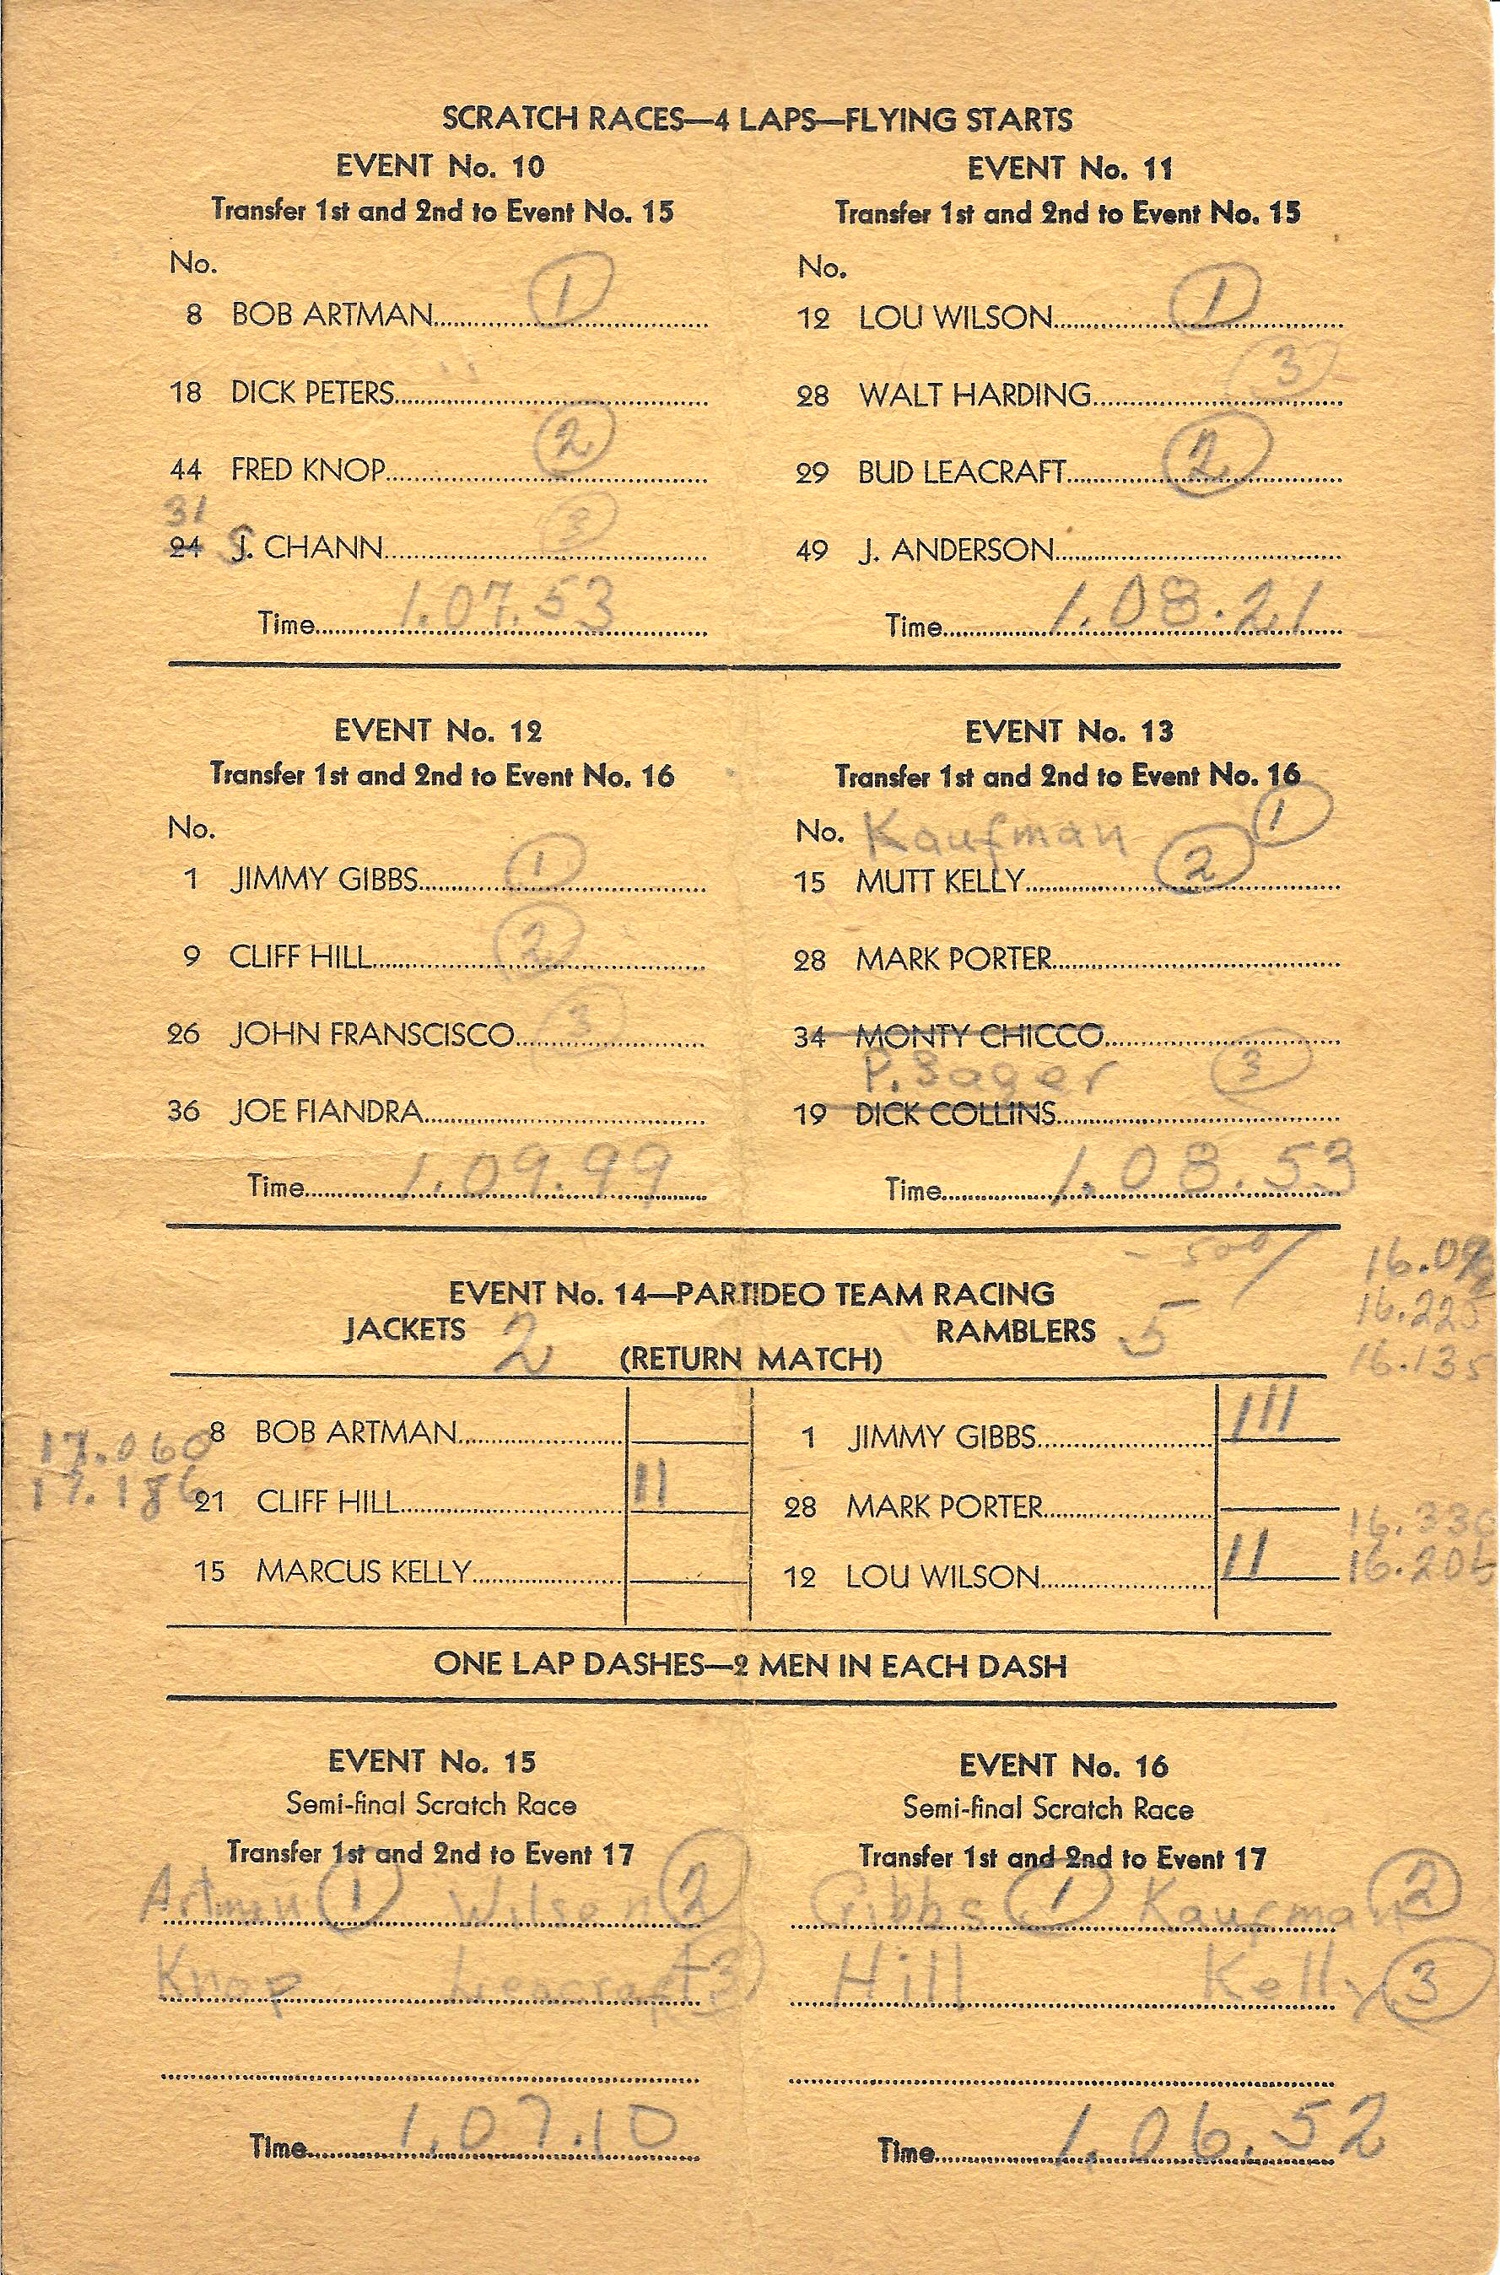 SCRATCH RACES—4 LAPS—FLYING STARTS
EVENT No. 10
Transfer 1st and 2nd to Event No. 15
No.
8 BOB ARTMAN 1
18 DICK PETERS
44 FRED KNOP 2
31
24 J. CHANN 3
Time 1.07.53
EVENT No. 11
Transfer 1st and 2nd to Event No. 15
No.
12 LOU WILSON 1
28 WALT HARDING 3
29 BUD LEACRAFT 2
49 J. ANDERSON
Time 1.08.21
EVENT No. 12
Transfer 1st and 2nd to Event No. 16
No.
1 JIMMY GIBBS 1
9 CLIFF HILL 2
26 JOHN FRANSCISCO 3
36 JOE FIANDRA
Time 1.09.99
EVENT No. 13
Transfer 1st and 2nd to Event No. 16
No. Kaufman 1
15 MUTT KELLY 2
28 MARK PORTER
34 MONTY CHICCO
P. Sager 3
19 DICK COLLINS
Time 1.08.53
EVENT No. 14—PARTIDEO TEAM RACING
JACKETS 2 RAMBLERS 5
(RETURN MATCH)
16.225
16.135
8 BOB ARTMAN 1 JIMMY GIBBS III
17.060
21 CLIFF HILL II 28 MARK PORTER
17.186
15 MARCUS KELLY 12 LOU WILSON II
16.330
16.205
ONE LAP DASHES—2 MEN IN EACH DASH
EVENT No. 15
Semi-final Scratch Race
Transfer 1st and 2nd to Event 17
Artman 1 Wilson 2
Knop Leacraft 3
Time 1.07.10
EVENT No. 16
Semi-final Scratch Race
Transfer 1st and 2nd to Event 17
Gibbs 1 Kaufman 2
Hill Kelly 3
Time 1.06.52